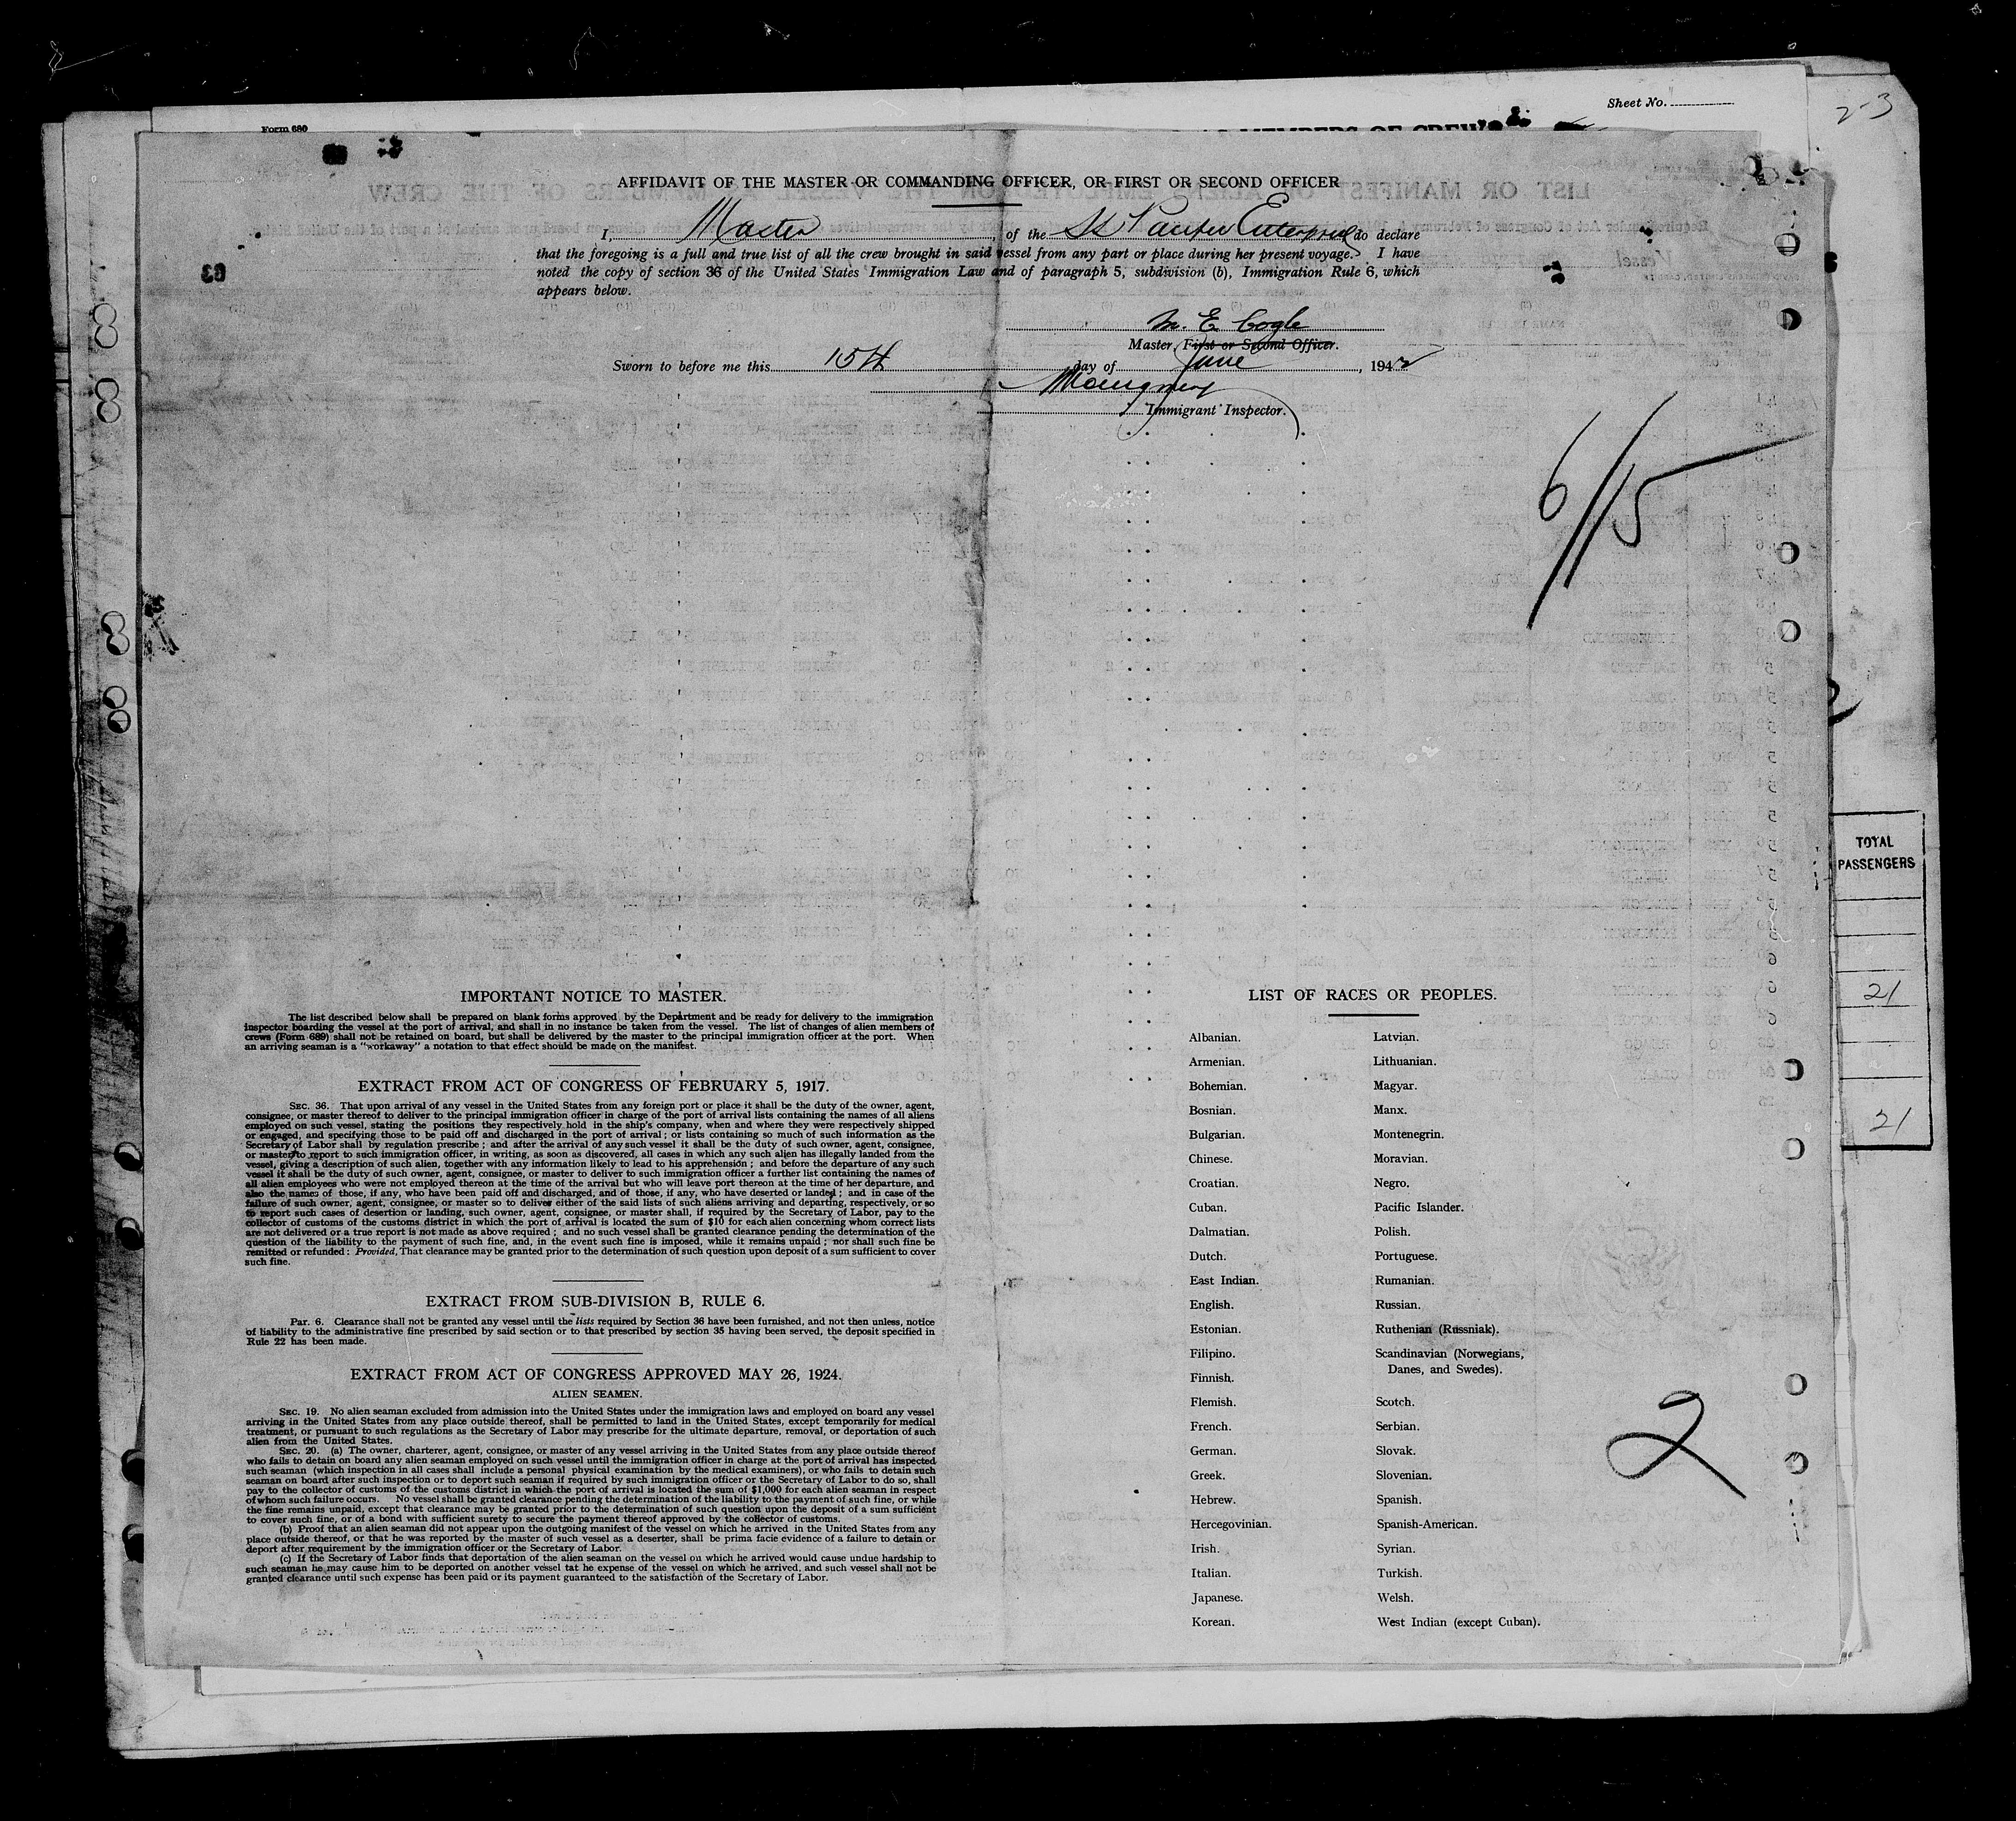 Sheet No.
2-3
Form 680
AFFIDAVIT OF THE MASTER OR COMMANDING OFFICER, OR FIRST OR SECOND OFFICER
I, Master, of the SS Enterprise do declare
that the foregoing is a full and true list of all the crew brought in said vessel from any part or place during her present voyage. I have
noted the copy of section 36 of the United States Immigration Law and of paragraph 5, subdivision (b), Immigration Rule 6, which
appears below.
M. E. Cogle
Master, First or Second Officer.
Sworn to before me this 15th day of June, 1942
Immigrant Inspector.
6/15
TOTAL
PASSENGERS
21
21
IMPORTANT NOTICE TO MASTER.
The list described below shall be prepared on blank forms approved by the Department and be ready for delivery to the immigration
inspector boarding the vessel at the port of arrival, and shall in no instance be taken from the vessel. The list of changes of alien members of
crews (Form 689) shall not be retained on board, but shall be delivered by the master to the principal immigration officer at the port. When
an arriving seaman is a "workaway" a notation to that effect should be made on the manifest.
EXTRACT FROM ACT OF CONGRESS OF FEBRUARY 5, 1917.
SEC. 36. That upon arrival of any vessel in the United States from any foreign port or place it shall be the duty of the owner, agent,
consignee, or master thereof to deliver to the principal immigration officer in charge of the port of arrival lists containing the names of all aliens
employed on such vessel, stating the positions they respectively hold in the ship's company, when and where they were respectively shipped
or engaged, and specifying those to be paid off and discharged in the port of arrival; or lists containing so much of such information as the
Secretary of Labor shall by regulation prescribe; and after the arrival of any such vessel it shall be the duty of such owner, agent, consignee,
or master to report to such immigration officer, in writing, as soon as discovered, all cases in which any such alien has illegally landed from the
vessel, giving a description of such alien, together with any information likely to lead to his apprehension; and before the departure of any such
vessel it shall be the duty of such owner, agent, consignee, or master to deliver to such immigration officer a further list containing the names of
all alien employees who were not employed thereon at the time of the arrival but who will leave port thereon at the time of her departure, and
also the names of those, if any, who have been paid off and discharged, and of those, if any, who have deserted or landed; and in case of the
failure of such owner, agent, consignee, or master so to deliver either of the said lists of such aliens arriving and departing, respectively, or so
to report such cases of desertion or landing, such owner, agent, consignee, or master shall, if required by the Secretary of Labor, pay to the
collector of customs of the customs district in which the port of arrival is located the sum of $10 for each alien concerning whom correct lists
are not delivered or a true report is not made as above required; and no such vessel shall be granted clearance pending the determination of the
question of the liability to the payment of such fine, and, in the event such fine is imposed, while it remains unpaid; nor shall such fine be
remitted or refunded: Provided, That clearance may be granted prior to the determination of such question upon deposit of a sum sufficient to cover
such fine.
EXTRACT FROM SUB-DIVISION B, RULE 6.
Par. 6. Clearance shall not be granted any vessel until the lists required by Section 36 have been furnished, and not then unless, notice
of liability to the administrative fine prescribed by said section or to that prescribed by section 35 having been served, the deposit specified in
Rule 22 has been made.
EXTRACT FROM ACT OF CONGRESS APPROVED MAY 26, 1924.
ALIEN SEAMEN.
SEC. 19. No alien seaman excluded from admission into the United States under the immigration laws and employed on board any vessel
arriving in the United States from any place outside thereof, shall be permitted to land in the United States, except temporarily for medical
treatment, or pursuant to such regulations as the Secretary of Labor may prescribe for the ultimate departure, removal, or deportation of such
alien from the United States.
SEC. 20. (a) The owner, charterer, agent, consignee, or master of any vessel arriving in the United States from any place outside thereof
who fails to detain on board any alien seaman employed on such vessel until the immigration officer in charge at the port of arrival has inspected
such seaman (which inspection in all cases shall include a personal physical examination by the medical examiners), or who fails to detain such
seaman on board after such inspection or to deport such seaman if required by such immigration officer or the Secretary of Labor to do so, shall
pay to the collector of customs of the customs district in which the port of arrival is located the sum of $1,000 for each alien seaman in respect
of whom such failure occurs. No vessel shall be granted clearance pending the determination of the liability to the payment of such fine, or while
the fine remains unpaid, except that clearance may be granted prior to the determination of such question upon the deposit of a sum sufficient
to cover such fine, or of a bond with sufficient surety to secure the payment thereof approved by the collector of customs.
(b) Proof that an alien seaman did not appear upon the outgoing manifest of the vessel on which he arrived in the United States from any
place outside thereof, or that he was reported by the master of such vessel as a deserter, shall be prima facie evidence of a failure to detain or
deport after requirement by the immigration officer or the Secretary of Labor.
(c) If the Secretary of Labor finds that deportation of the alien seaman on the vessel on which he arrived would cause undue hardship to
such seaman he may cause him to be deported on another vessel tat he expense of the vessel on which he arrived, and such vessel shall not be
granted clearance until such expense has been paid or its payment guaranteed to the satisfaction of the Secretary of Labor.
LIST OF RACES OR PEOPLES.
Albanian.
Armenian.
Bohemian.
Bosnian.
Bulgarian.
Chinese.
Croatian.
Cuban.
Dalmatian.
Dutch.
East Indian.
English.
Estonian.
Filipino.
Finnish.
Flemish.
French.
German.
Greek.
Hebrew.
Hercegovinian.
Irish.
Italian.
Japanese.
Korean.
Latvian.
Lithuanian.
Magyar.
Manx.
Montenegrin.
Moravian.
Negro.
Pacific Islander.
Polish.
Portuguese.
Rumanian.
Russian.
Ruthenian (Russniak).
Scandinavian (Norwegians,
Danes, and Swedes).
Scotch.
Serbian.
Slovak.
Slovenian.
Spanish.
Spanish-American.
Syrian.
Turkish.
Welsh.
West Indian (except Cuban).
2